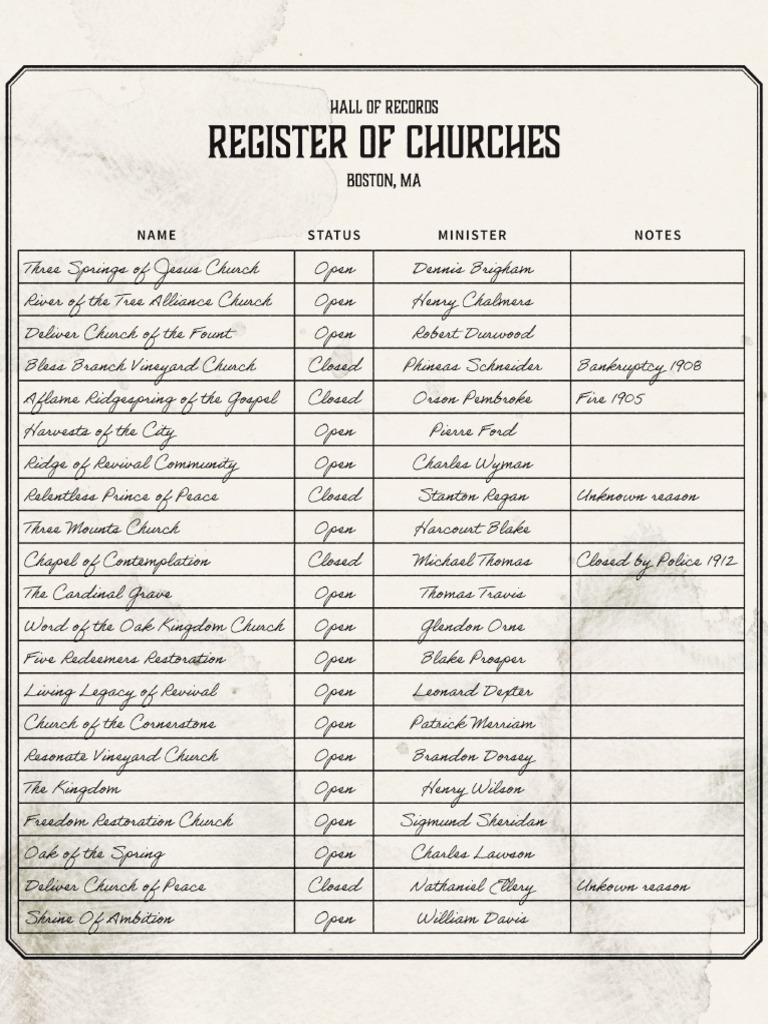 HALL OF RECORDS
REGISTER OF CHURCHES
BOSTON, MA
NAME STATUS MINISTER NOTES
Three Springs of Jesus Church Open Dennis Brigham
River of the Tree Alliance Church Open Henry Chalmers
Deliver Church of the Fount Open Robert Durwood
Bless Branch Vineyard Church Closed Phineas Schneider Bankruptcy 1908
Aflame Ridgespring of the Gospel Closed Orson Pembroke Fire 1905
Harvests of the City Open Pierre Ford
Ridge of Revival Community Open Charles Wyman
Relentless Prince of Peace Closed Stanton Regan Unknown reason
Three Mounts Church Open Harcourt Blake
Chapel of Contemplation Closed Michael Thomas Closed by Police 1912
The Cardinal Grave Open Thomas Travis
Word of the Oak Kingdom Church Open Glendon Orne
Five Redeemers Restoration Open Blake Prosper
Living Legacy of Revival Open Leonard Dexter
Church of the Cornerstone Open Patrick Merriam
Resonate Vineyard Church Open Brandon Dorsey
The Kingdom Open Henry Wilson
Freedom Restoration Church Open Sigmund Sheridan
Oak of the Spring Open Charles Lawson
Deliver Church of Peace Closed Nathaniel Ellery Unkown reason
Shrine Of Ambition Open William Davis